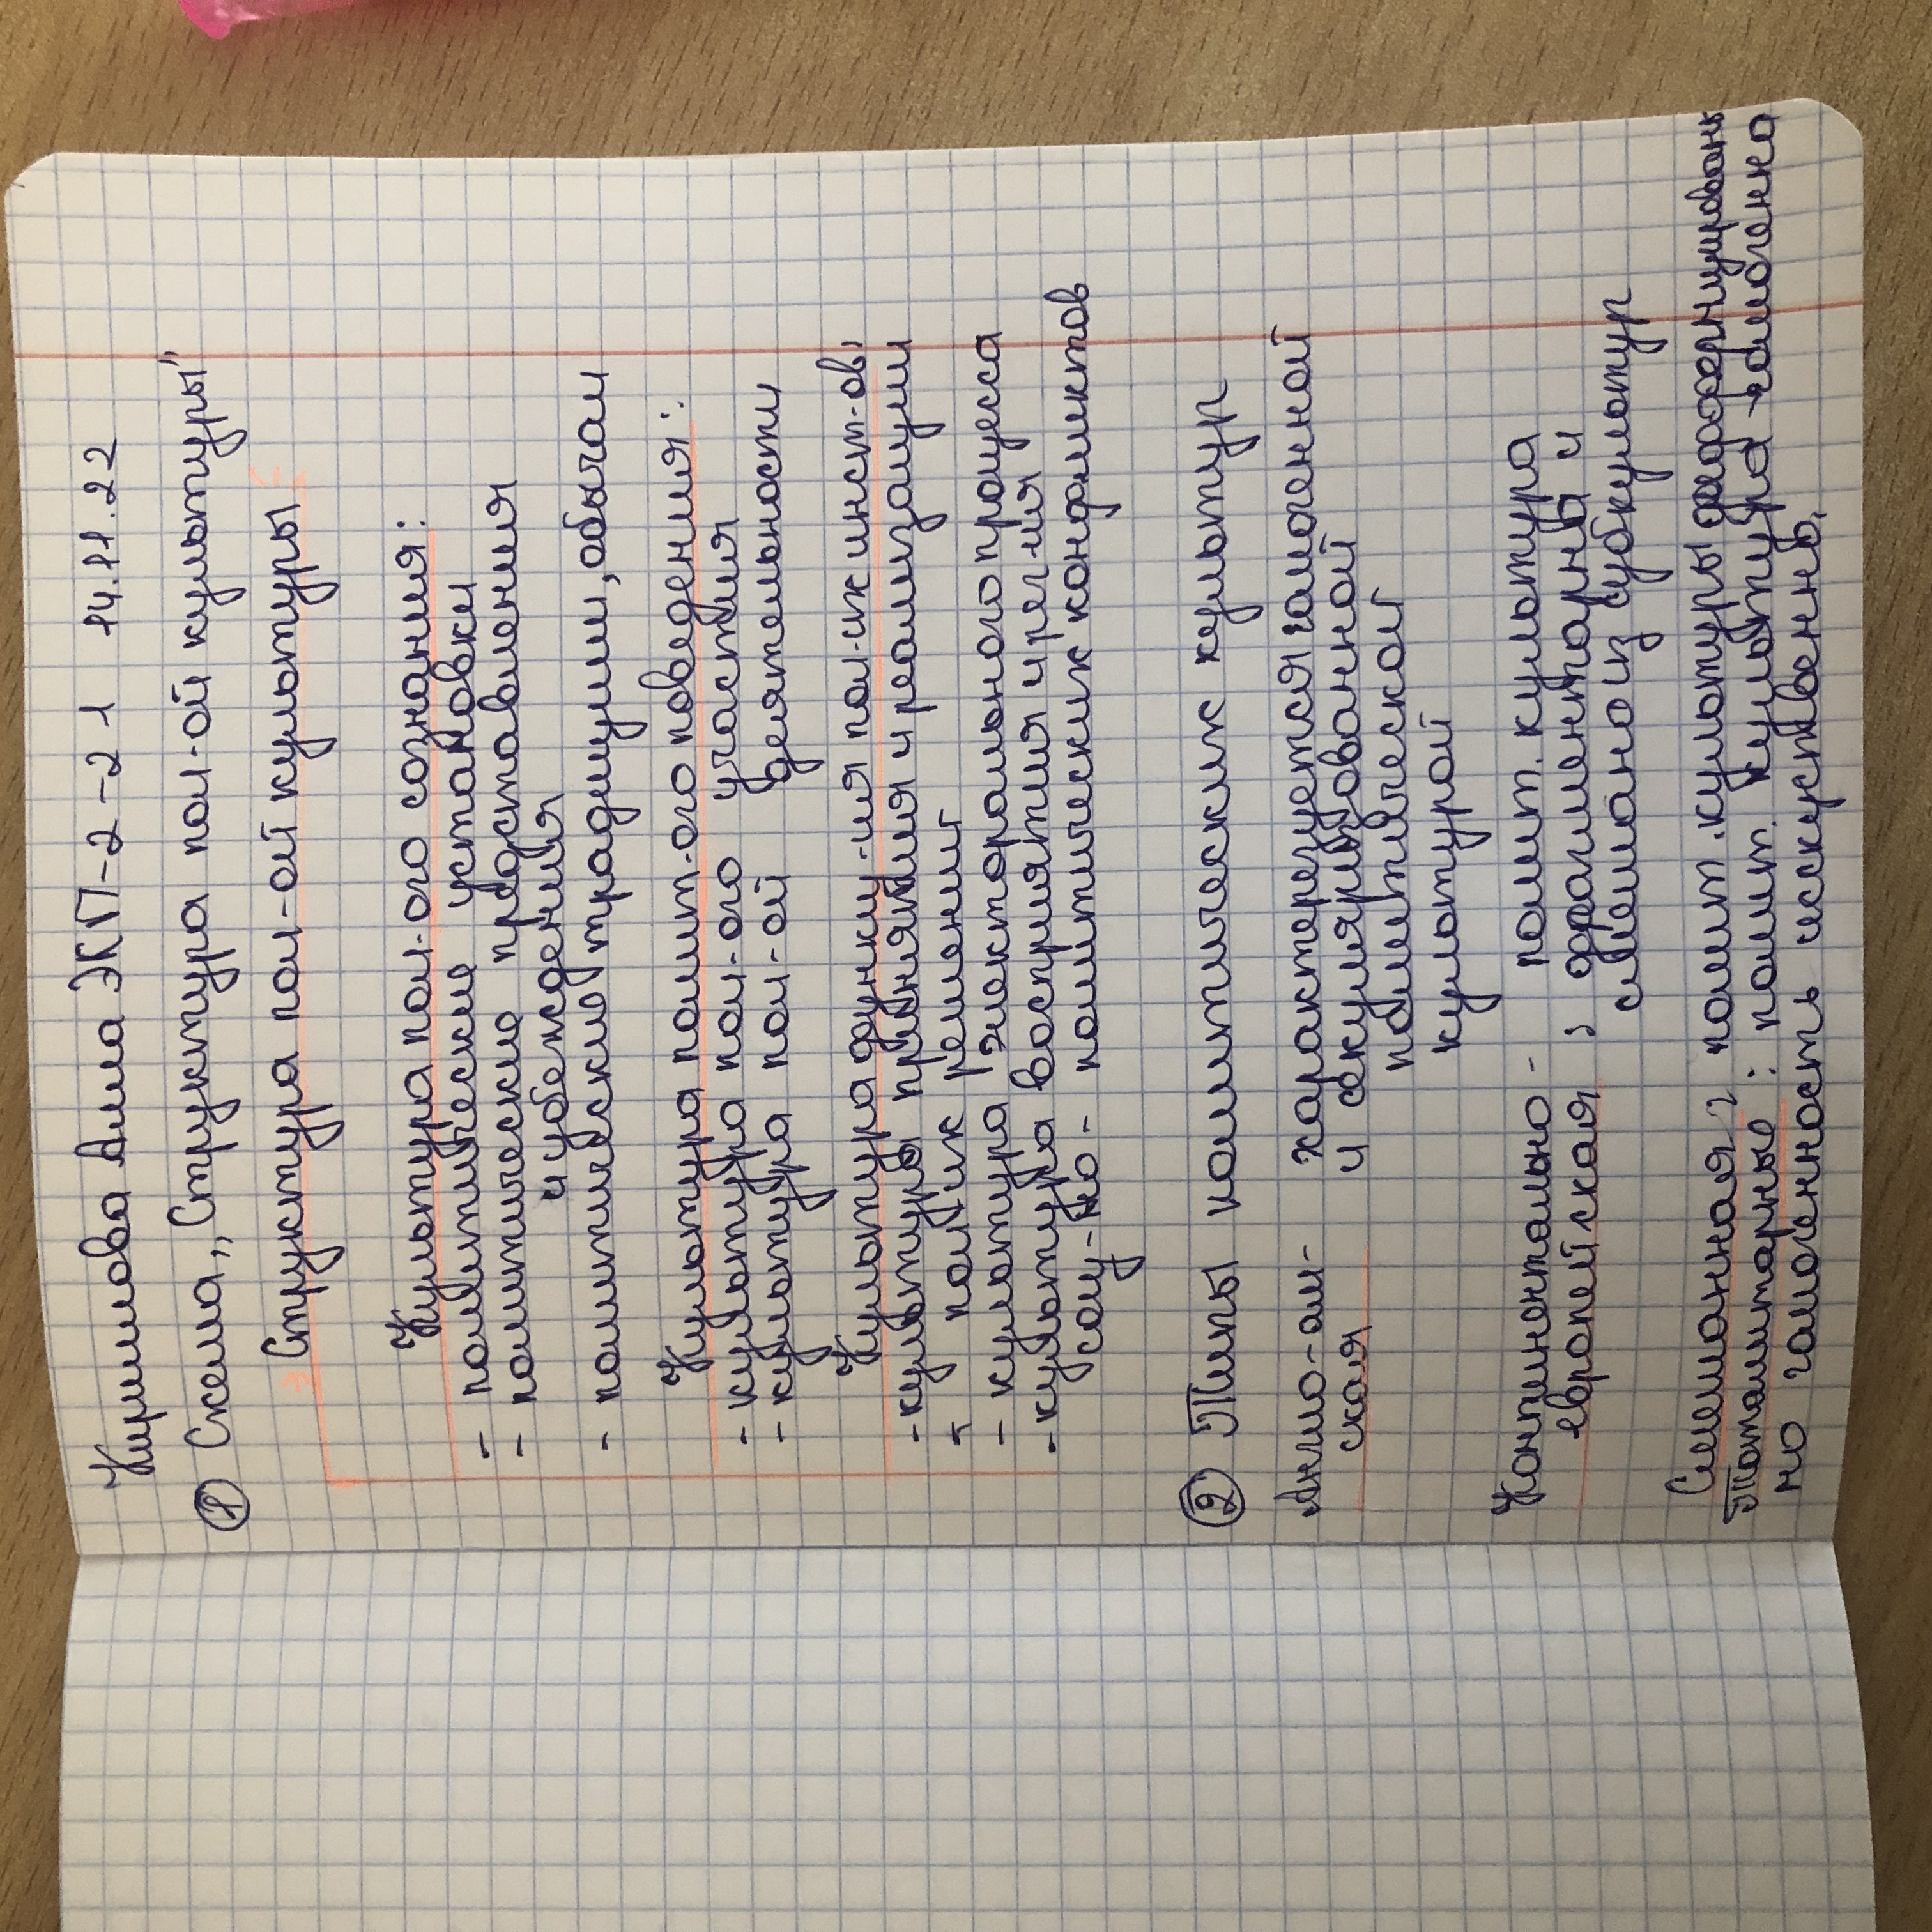 Киришова Алиа ЭКП-2-2-21 14.11.22
① Схема „Структура пол-ой культуры"
Структура пол-ой культуры
Культура пол-ого сознания:
- политические установки
- политические представления
и убеждения
- политические традиции, обычаи
Культура полит-ого поведения:
- культура пол-ого участия
- культура пол-ой деятельности
Культура функци-ия пол-ских инст-ов,
- культура принятия и реализации
- полит-их решений
- культура электорального процесса
- культура восприятия и рег-ния
соц-но- политических конфликтов
② Типы политических культур
Англо-аме- характерезуется гамогенной
ская и секуляризованной
политической
культурой
Континентально- полит. культура
европейская ; фрагментарны и
смешано из субкультур
Смешанная полит. культуры
Тоталитарные: полит. культура гамогенна
но гамогенность искуственны,